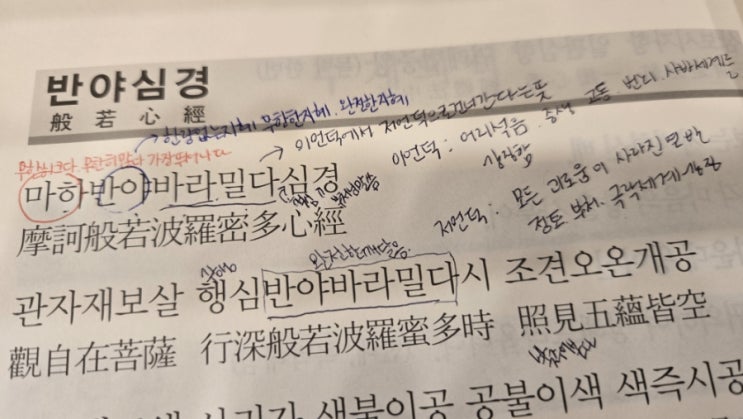 반야심경
般若心經
한량없는지혜 무한한지혜. 완전한지혜
이언덕에서 저언덕으로건너간다는뜻
이언덕: 어리석음. 중생 고통 번뇌 사바세계
무한히크다. 가장
마하반야바라밀다심경
핵심
저언덕: 모든 괴로움이 사라진 열반
정토 부처. 극락세계
摩訶般若波羅密多心經
완전한깨달음.
관자재보살 행심반야바라밀다시 조견오온개공
觀自在菩薩 行深般若波羅蜜多時 照見五蘊皆空
사리자 색불이공 공불이색 색즉시공